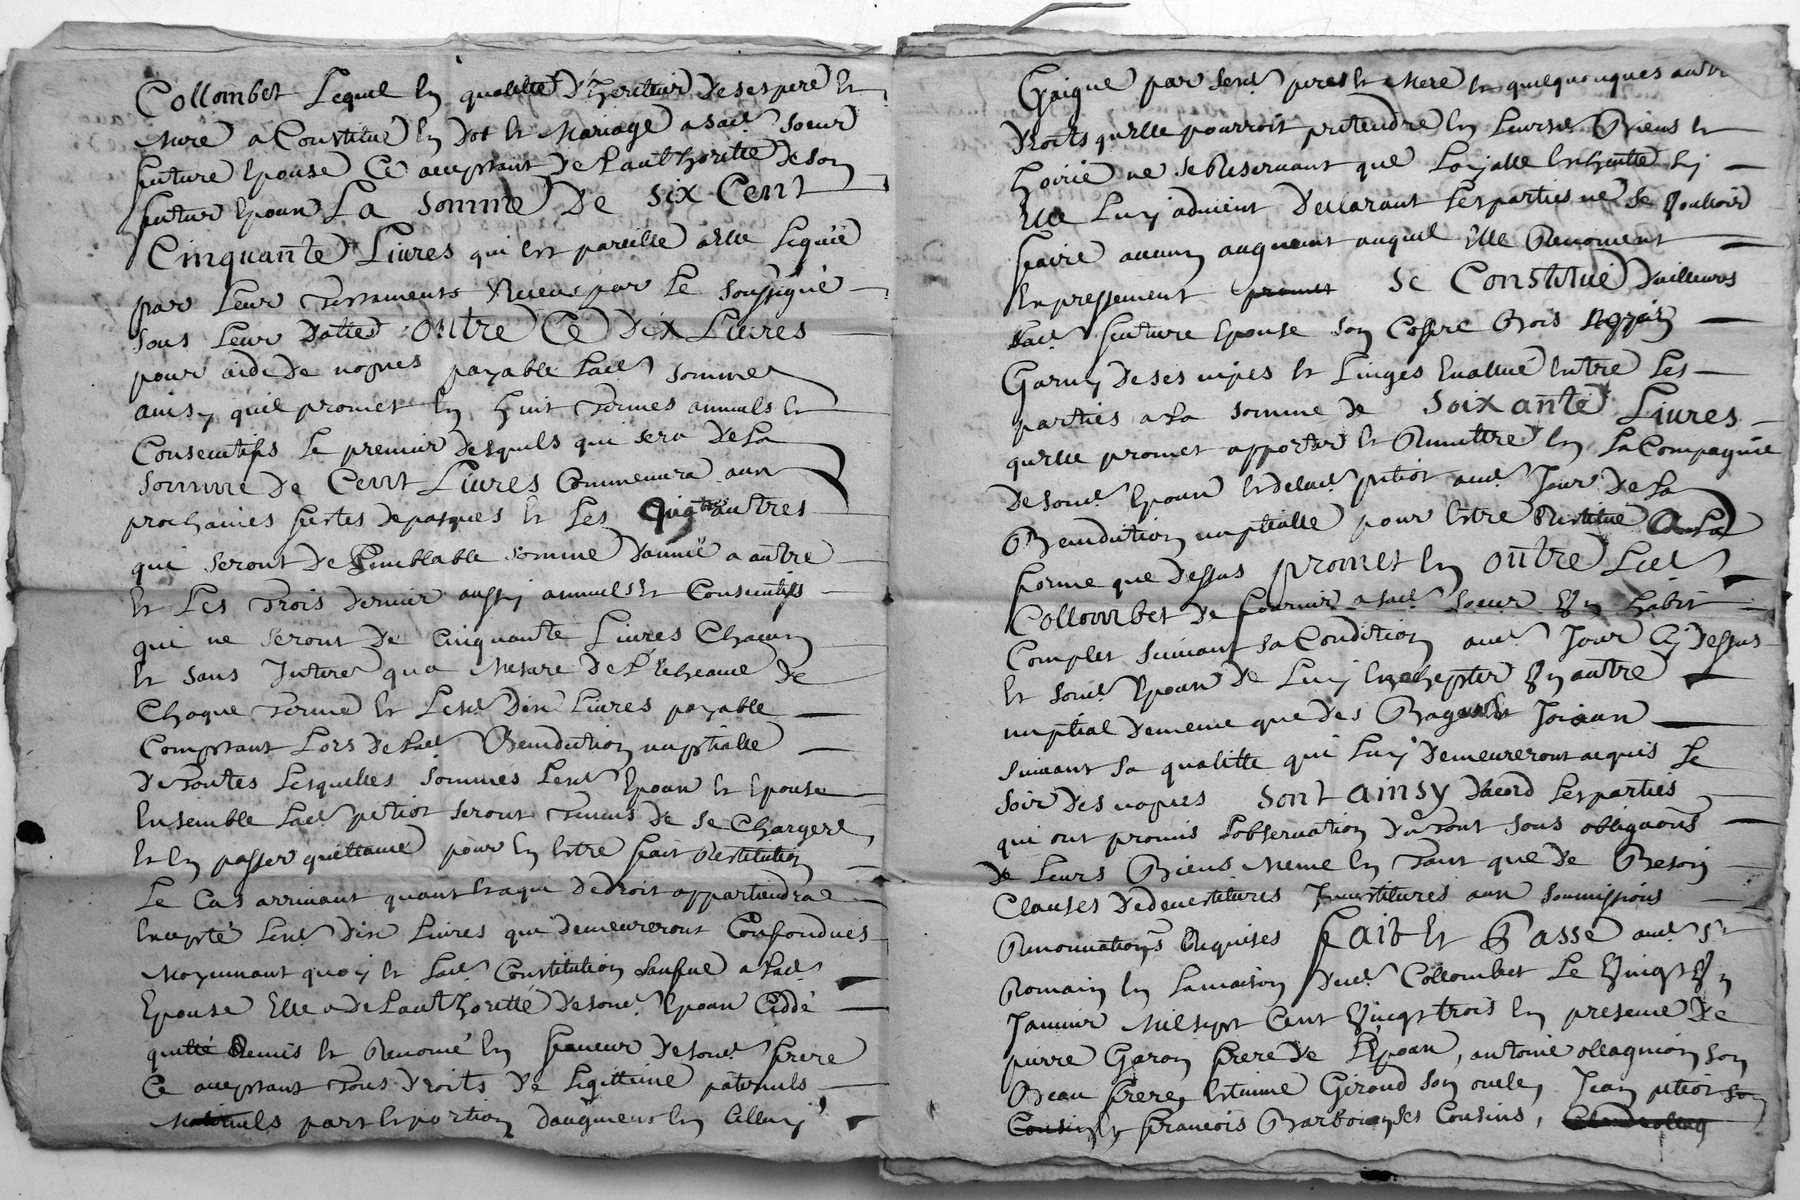 Collombet Lequel en qualitte d'heritier de ses pere et
Mere a Constitué en Dot et Mariage a sad. soeur
future Epouse Ce acceptant de Lauthoritte de son
futur Epoux La somme De six Cent
Cinquante Livres qui est pareille a elle Leguéé
par Leur Testaments Receus par Le soussigné
sous Leur Datte outre Ce Dix Livres
pour aide de nopces payable Lad. somme
ainsy quil promet en huit Termes annuels et
Consecutifs Le premier desquels qui sera de La
somme de Cent Livres Commencera aux
prochaines festes de pasques et Les quatre autres
qui seront De semblable somme Dannéé a autre
et Les Trois dernier aussy annuels et Consecutifs
qui ne seront De Cinquante Livres Chacun
et sans Interet qua Mesure de L'Echeance De
Chaque Terme et Lesd. Dix Livres payable
Comptant Lors de Lad. Benediction nuptialle
De Toutes Lesquelles sommes Lesd. Epoux et Epouse
Ensemble Lad. petiot seront Tenus de se Charger
et en passer quittance pour en Estre fait Restitution
Le Cas arrivant quant et a qui De droit appartiendra
Excepté Lesd. Dix Livres qui demeureront Confondues
Moyennant quoy et Lad. Constitution sausfue a Lad.
Epouse Elle a de Lauthoritté de sond. Epoux Ceddé
quitté Remis et Renoncé en faveur de sond. frere
Ce acceptant Tous Droits De Legittime paternels
Maternels part et portion Daugment en Celluy
Gaigné par sesd. peres et Mere et quelquonques autre
Droits qu'elle pourroit pretendre en Leursd. Biens et
hoirie ne se Reservant que Loyalle Escheutte sy
Elle Luy advient Declarant Les parties ne se Vouloir
faire aucun augment auquel Elle Renoncent
Expressement se Constitue D'ailleurs
Lad. future Epouse son Coffre Bois sappin
Garny de ses nipes et Linges Evallué Entre Les
parties a La somme de soixante Livres
qu'elle promet apporter et Remettre en La Compagnie
de sond. Epoux et de Lad. petiot aud. Jour De La
Benediction nuptialle pour Estre Restitué a La
forme que Dessus promet en outre Led.
Collombet de fournir a sad. soeur Un habit
Complet suivant sa Condition aud. Jour Cy Dessus
et sond. Epoux de Luy En achepter Un autre
nuptial de meme que des Bagues et Joiaux
suivant sa qualitte qui Luy Demeureront acquis Le
soir Des nopces sont ainsy D'acord Les parties
qui ont promis L'observation du Tout sous obligaons
de Leurs Biens Meme en Tant que De Besoin
Clauses De devestitures Investitures aux soumissions
Renonciations Requises fait et Passé aud. St
Romain en La maison Dud. Collombet Le Vingt Un
Janvier Mil sept Cent Vingt trois en presence De
pierre Garon frere de L'Epoux, antoine ollagnion son
Beau frere, Estienne Giroud son oncle, Jean petiot son
Cousin et francois Barbou ses Cousins,